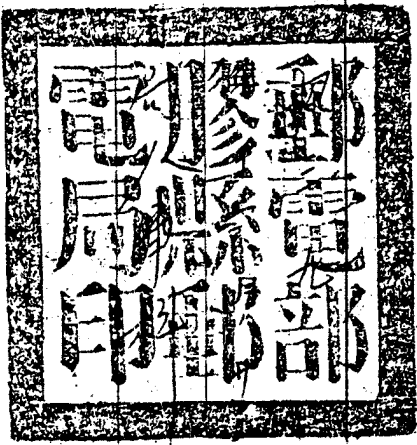 郵電部
縣郵
電局印